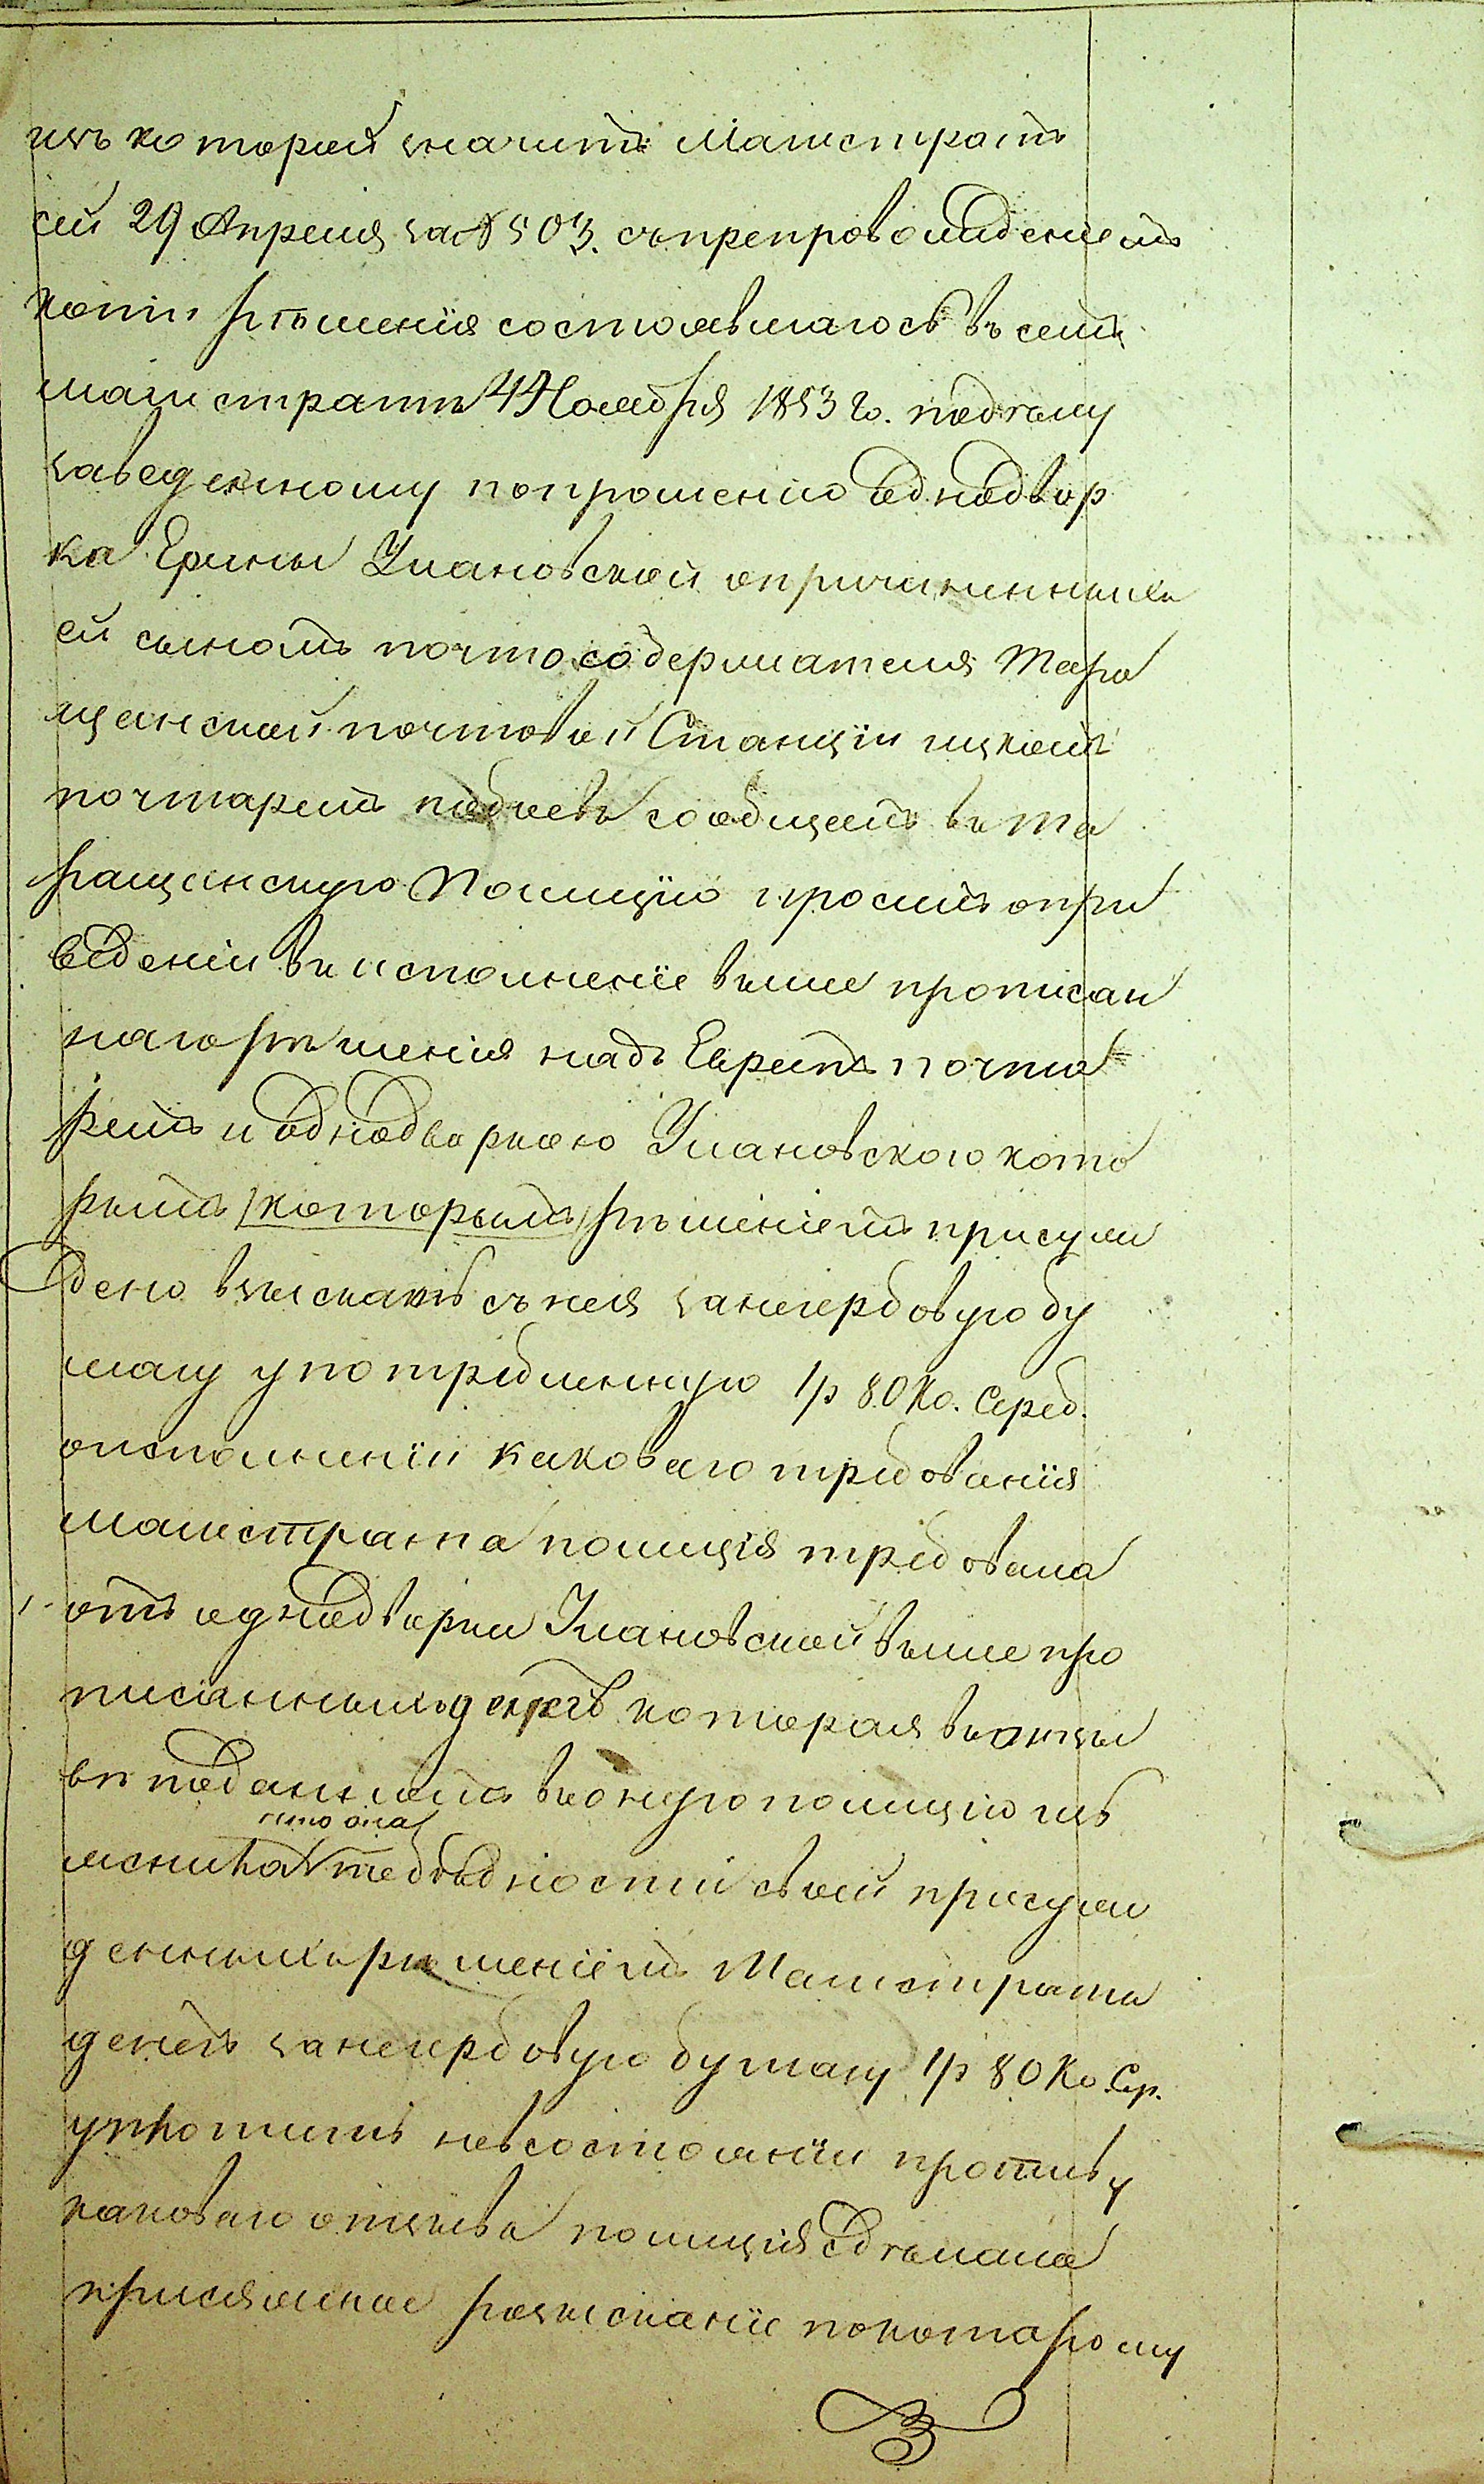 изъ которой значитъ Магистратъ
сей 29 Апреля за № 503. съ препровожденіемъ
копіи рѣшенія состоявшагося въ семъ
магистратѣ 4 Ноября 1853 го. по дѣлу
заведенному по прошенію однодвор
ка Ерины Улановской о причиненныхъ
ей сыномъ почтосодержателя Тара
щанской почтовой Станціи
почтаремъ побоевъ сообщаетъ въ Та
ращанскую Полицію проситъ о при
веденіи въ исполненіе выше прописан
наго рѣшенія надъ Евреемъ почта
ремъ и однодворкою Улановскою кото
рымъ (которымъ) рѣшеніемъ присуж
дено взыскать съ нея за негербовую бу
магу употребленную 1 р 80 ко. Сереб.
о исполненіи каковаго требованія
магистрата полиція требовала
отъ однодворки Улановской выше про
писанныхъ денегъ которая въ отзы
вѣ поданномъ въ оную полицію изъ
яснила что она по бѣдности своей присуж
денныхъ рѣшеніемъ Магистрата
денегъ за негербовую бумагу 1 р 80 Ко. Сер.
уплотить не въ состояніи противу
каковаго отзыва полиція сдѣлала
присяжное розысканіе по которому